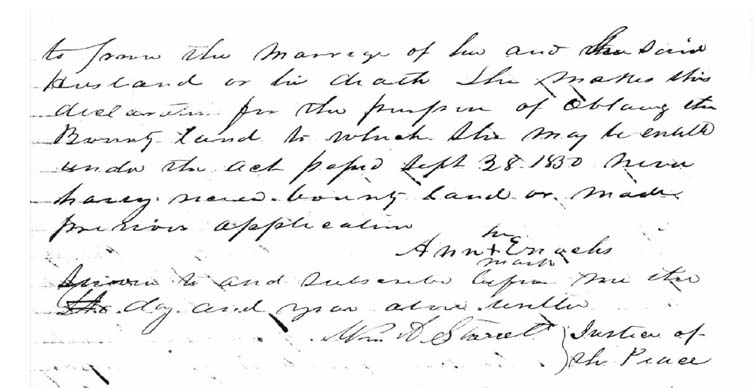 to prove the marriage of her and the said
Husband or his death She makes this
declaration for the purpose of Obtaing the
Bounty Land to which She may be entitle
under the act passed Sept 28 1850 never
having received bounty Land or made
previous application
Ann her x mark Enochs
Sworn to and subscribe before me the
the day and year above written
Wm A Starrett } Justice of
the Peace